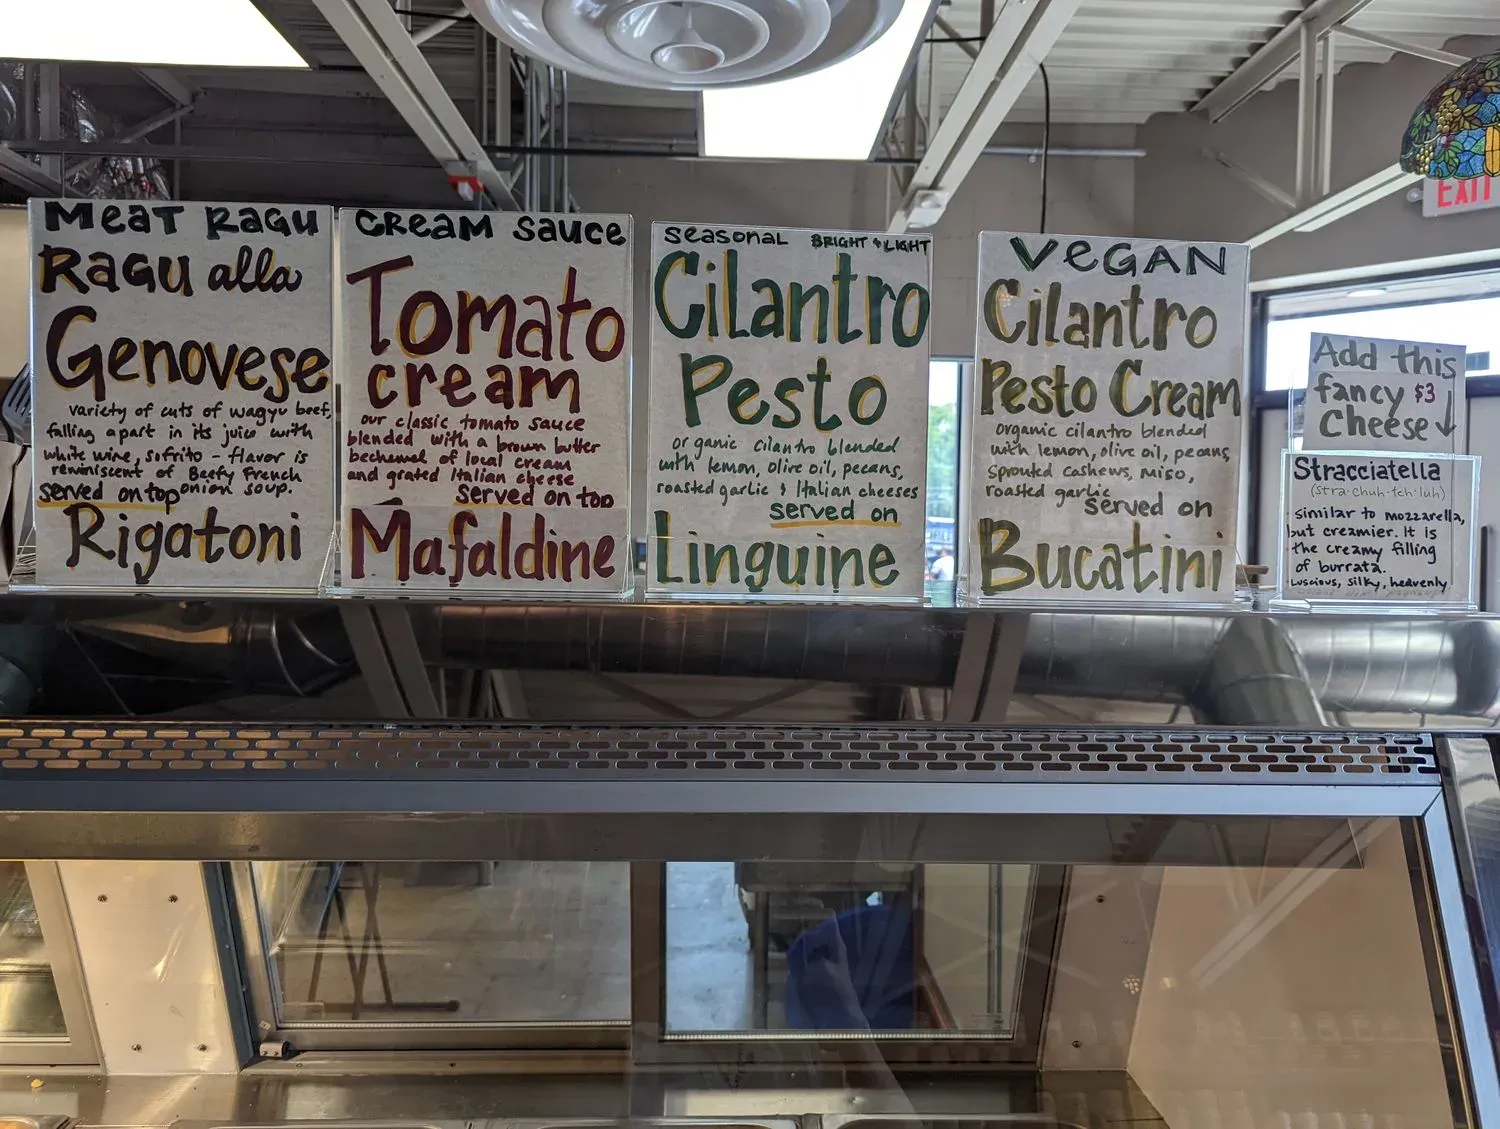 MEAT RAGU
RAGU alla
Genovese
variety of cuts of wagyu beef,
falling apart in its juice with
white wine, sofrito - flavor is
reminiscent of Beefy French
onion soup.
served on top
Rigatoni
CREAM SAUCE
Tomato
cream
our classic tomato sauce
blended with a brown butter
bechamel of local cream
and grated Italian cheese
served on top
Mafaldine
SEASONAL BRIGHT & LIGHT
Cilantro
Pesto
organic cilantro blended
with lemon, olive oil, pecans,
roasted garlic & Italian cheeses
served on
Linguine
VEGAN
Cilantro
Pesto Cream
organic cilantro blended
with lemon, olive oil, pecans,
sprouted cashews, miso,
roasted garlic
served on
Bucatini
Add this
fancy $3
Cheese
Stracciatella
(stra·chuh·teh·luh)
similar to mozzarella,
but creamier. It is
the creamy filling
of burrata.
Luscious, silky, heavenly.
EXIT